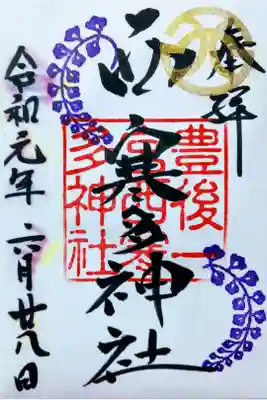 奉拝
西寒多神社
豊後一
宮西寒
多神社
令和元年 六月廿八日